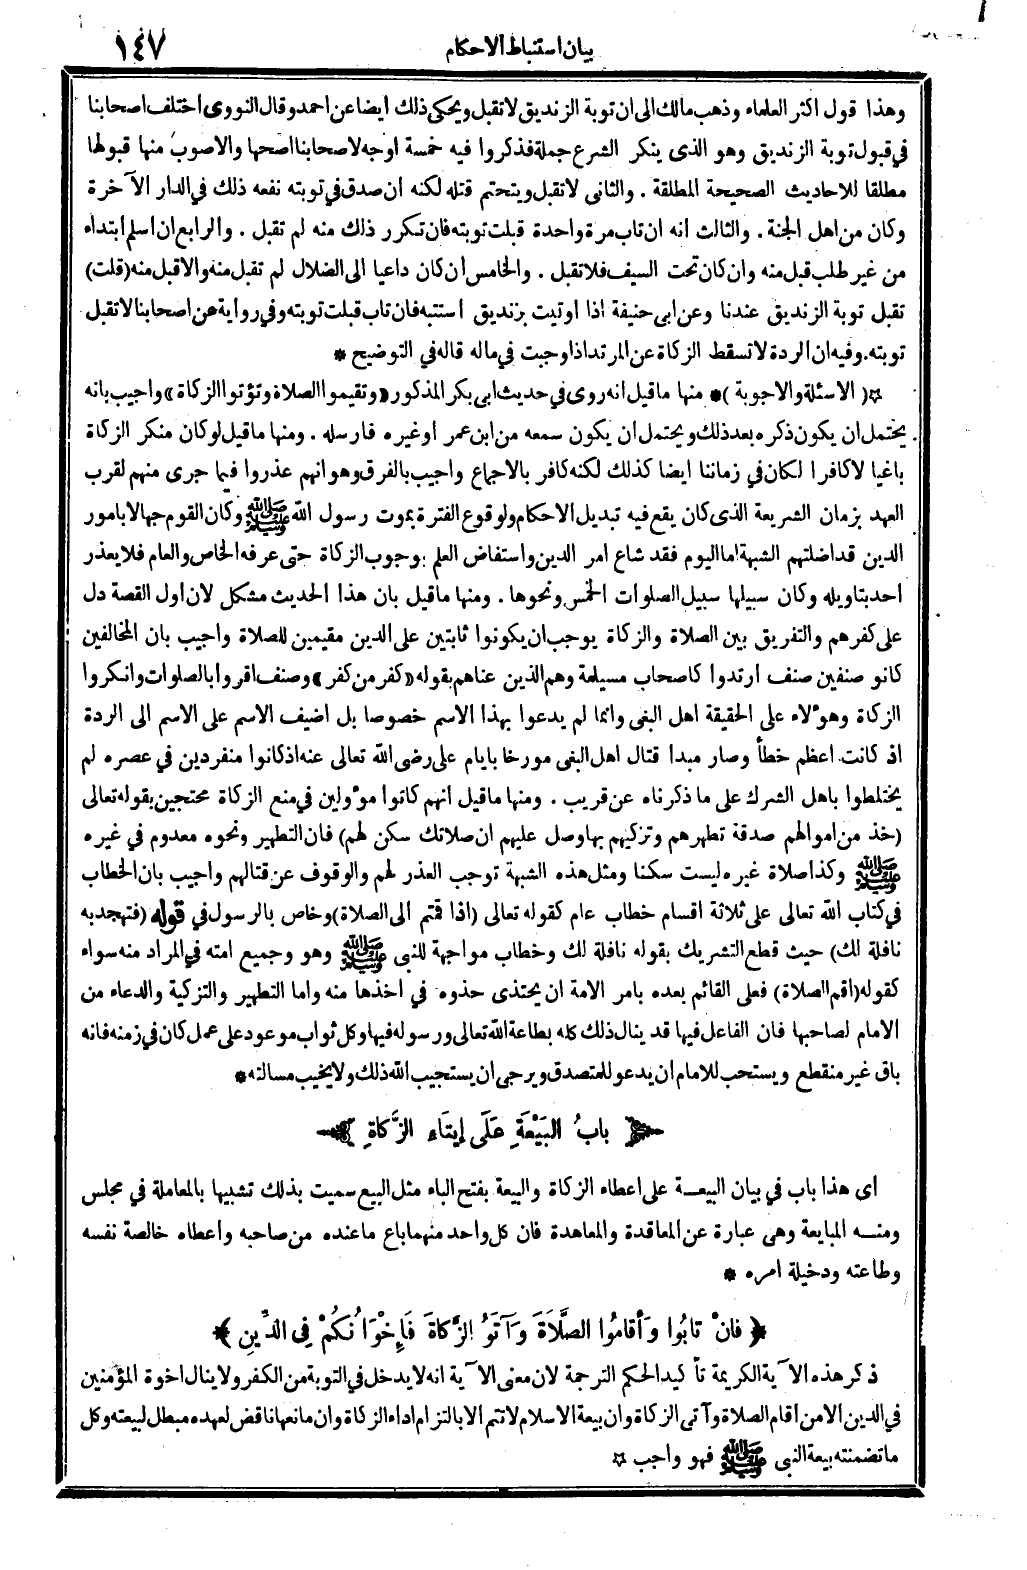 بيان استنباط الاحكام
١٤٧
وهذا قول اكثر العلماء وذهب مالك الى ان توبة الزنديق لا تقبل ويحكى ذلك ايضا عن احمد وقال النووى اختلف اصحابنا
في قبول توبة الزنديق وهو الذى ينكر الشرع جملة فذكروا فيه خمسة اوجه لاصحابنا اصحها والاصوب منها قبولها
مطلقا للاحاديث الصحيحة المطلقة . والثانى لا تقبل ويتحتم قتله لكنه ان صدق في توبته نفعه ذلك في الدار الآخرة
وكان من اهل الجنة . والثالث انه ان تاب مرة واحدة قبلت توبته فان تكرر ذلك منه لم تقبل . والرابع ان اسلم ابتداء
من غير طلب قبل منه وان كان تحت السيف فلا تقبل . والخامس ان كان داعيا الى الضلال لم تقبل منه والا قبل منه (قلت)
تقبل توبة الزنديق عندنا وعن ابى حنيفة اذا اوتيت بزنديق استتبه فان تاب قبلت توبته وفي رواية عن اصحابنا لا تقبل
توبته. وفيه ان الردة لا تسقط الزكاة عن المرتد اذا وجبت في ماله قاله في التوضيح *
☆( الاسئلة والاجوبة )* منها ما قيل انه روى في حديث ابى بكر المذكور «وتقيموا الصلاة وتؤتوا الزكاة» واجيب بانه
يحتمل ان يكون ذكره بعد ذلك ويحتمل ان يكون سمعه من ابن عمر او غيره فارسله . ومنها ما قيل لو كان منكر الزكاة
باغيا لا كافرا لكان في زماننا ايضا كذلك لكنه كافر بالاجماع واجيب بالفرق وهو انهم عذروا فيما جرى منهم لقرب
العهد بزمان الشريعة الذى كان يقع فيه تبديل الاحكام ولوقوع الفترة بموت رسول الله ﷺ وكان القوم جهالا بامور
الدين قد اضلتهم الشبهة اما اليوم فقد شاع امر الدين واستفاض العلم بوجوب الزكاة حتى عرفه الخاص والعام فلا يعذر
احد بتاويله وكان سبيلها سبيل الصلوات الخمس ونحوها . ومنها ما قيل بان هذا الحديث مشكل لان اول القصة دل
على كفرهم والتفريق بين الصلاة والزكاة يوجب ان يكونوا ثابتين على الدين مقيمين للصلاة واجيب بان المخالفين
كانو صنفين صنف ارتدوا كاصحاب مسيلمة وهم الذين عناهم بقوله «كفر من كفر» وصنف اقروا بالصلوات وانكروا
الزكاة وهؤلاء على الحقيقة اهل البغى وانما لم يدعوا بهذا الاسم خصوصا بل اضيف الاسم على الاسم الى الردة
اذ كانت اعظم خطأ وصار مبدا قتال اهل البغى مورخا بايام على رضى الله تعالى عنه اذ كانوا منفردين في عصره لم
يختلطوا باهل الشرك على ما ذكرناه عن قريب . ومنها ما قيل انهم كانوا مؤولين في منع الزكاة محتجين بقوله تعالى
(خذ من اموالهم صدقة تطهرهم وتزكيهم بها وصل عليهم ان صلاتك سكن لهم) فان التطهير ونحوه معدوم في غيره
ﷺ وكذا صلاة غيره ليست سكنا ومثل هذه الشبهة توجب العذر لهم والوقوف عن قتالهم واجيب بان الخطاب
في كتاب الله تعالى على ثلاثة اقسام خطاب عام كقوله تعالى (اذا قمتم الى الصلاة) وخاص بالرسول في قوله (فتهجد به
نافلة لك) حيث قطع التشريك بقوله نافلة لك وخطاب مواجهة للنبى ﷺ وهو وجميع امته في المراد منه سواء
كقوله (اقم الصلاة) فعلى القائم بعده بامر الامة ان يحتذى حذوه في اخذها منه واما التطهير والتزكية والدعاء من
الامام لصاحبها فان الفاعل فيها قد ينال ذلك كله بطاعة الله تعالى ورسوله فيها وكل ثواب موعود على عمل كان في زمنه فانه
باق غير منقطع ويستحب للامام ان يدعو للمتصدق ويرجى ان يستجيب الله ذلك ولا يخيب مسالته *
بابُ البَيْعَةِ عَلَى إيتَاءِ الزَّكاةِ
اى هذا باب في بيان البيعة على اعطاء الزكاة والبيعة بفتح الباء مثل البيع سميت بذلك تشبيها بالمعاملة في مجلس
ومنه المبايعة وهى عبارة عن المعاقدة والمعاهدة فان كل واحد منهما باع ما عنده من صاحبه واعطاه خالصة نفسه
وطاعته ودخيلة امره *
﴿ فانْ تابُوا وَأقامُوا الصَّلَاةَ وَآتَوُا الزَّكاةَ فَإِخْوَانُكُمْ فِى الدِّينِ ﴾
ذكر هذه الآية الكريمة تأكيدا لحكم الترجمة لان معنى الآية انه لا يدخل في التوبة من الكفر ولا ينال اخوة المؤمنين
في الدين الا من اقام الصلاة وآتى الزكاة وان بيعة الاسلام لا تتم الا بالتزام اداء الزكاة وان مانعها ناقض لعهده مبطل لبيعته وكل
ما تضمنته بيعة النبى ﷺ فهو واجب ☆